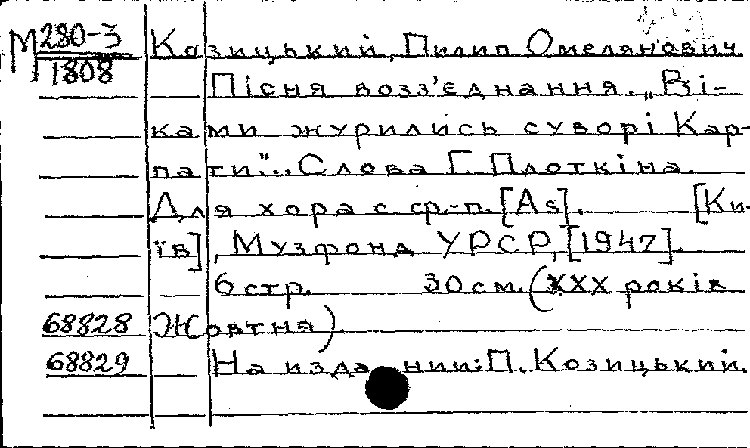 М 280-3 Козицький, Пилип Омелянович
1808
Пісня возз'єднання. „Ві-
ками журились суворі Кар-
пати"... Слова Г. Плоткіна.
Для хора с ср.-п. [As]. [Ки-
їв], Музфонд УРСР, [1947].
6 стр. 30 см. (XXX років
68828 Жовтня)
68829 На издании: П. Козицький.